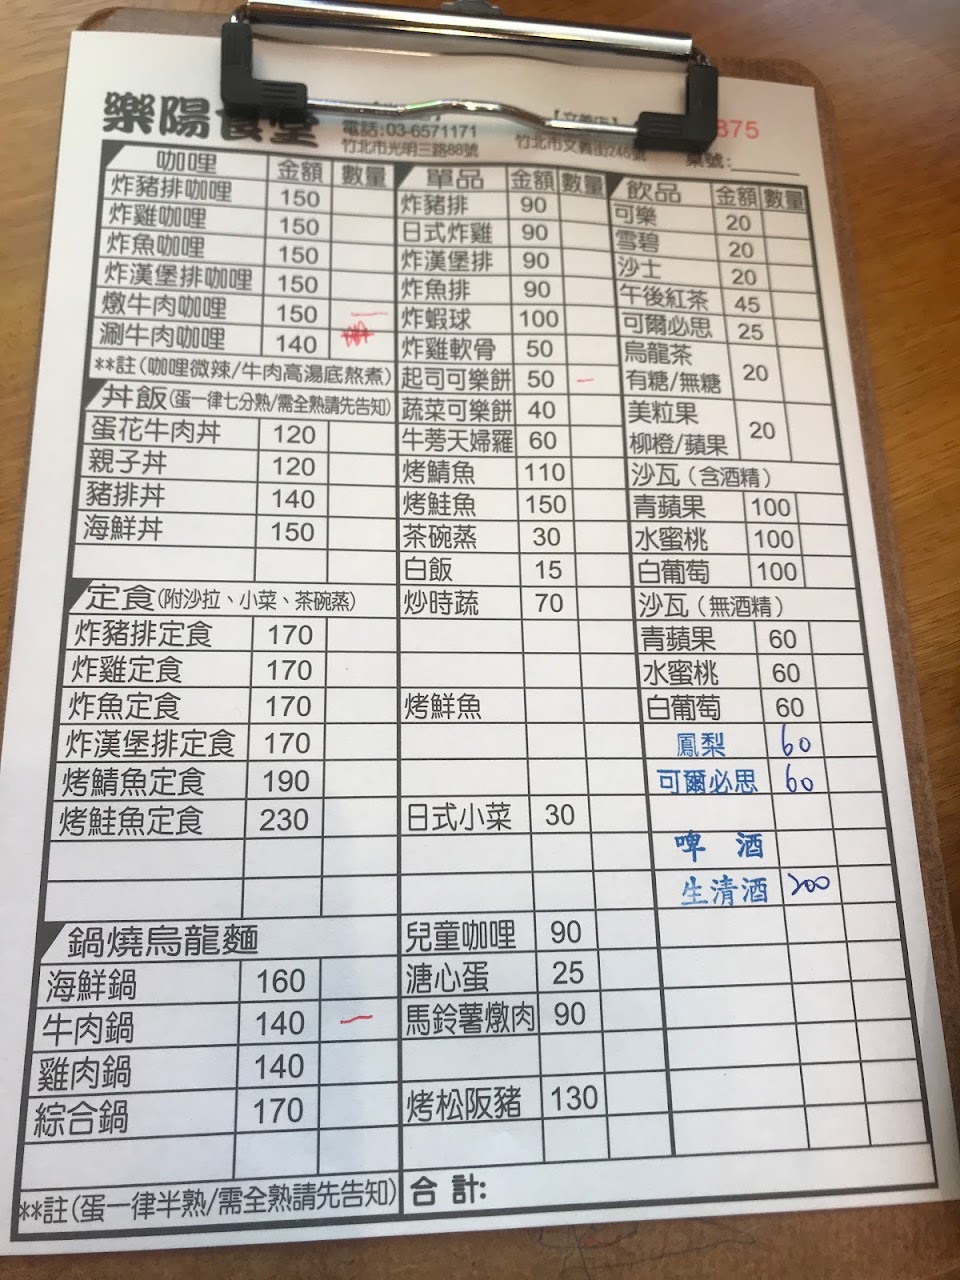 樂陽食堂
電話:03-6571171
竹北市光明三路88號
【文義店】
竹北市文義街246號
875
桌號:
咖哩 金額 數量
炸豬排咖哩 150
炸雞咖哩 150
炸魚咖哩 150
炸漢堡排咖哩 150
燉牛肉咖哩 150
涮牛肉咖哩 140
**註(咖哩微辣/牛肉高湯底熬煮)
丼飯(蛋一律七分熟/需全熟請先告知)
蛋花牛肉丼 120
親子丼 120
豬排丼 140
海鮮丼 150
定食(附沙拉、小菜、茶碗蒸)
炸豬排定食 170
炸雞定食 170
炸魚定食 170
炸漢堡排定食 170
烤鯖魚定食 190
烤鮭魚定食 230
鍋燒烏龍麵
海鮮鍋 160
牛肉鍋 140 一
雞肉鍋 140
綜合鍋 170
**註(蛋一律半熟/需全熟請先告知)
單品 金額 數量
炸豬排 90
日式炸雞 90
炸漢堡排 90
炸魚排 90
炸蝦球 100
炸雞軟骨 50
起司可樂餅 50 一
蔬菜可樂餅 40
牛蒡天婦羅 60
烤鯖魚 110
烤鮭魚 150
茶碗蒸 30
白飯 15
炒時蔬 70
烤鮮魚
日式小菜 30
兒童咖哩 90
溏心蛋 25
馬鈴薯燉肉 90
烤松阪豬 130
合計:
飲品 金額 數量
可樂 20
雪碧 20
沙士 20
午後紅茶 45
可爾必思 25
烏龍茶
有糖/無糖 20
美粒果
柳橙/蘋果 20
沙瓦(含酒精)
青蘋果 100
水蜜桃 100
白葡萄 100
沙瓦(無酒精)
青蘋果 60
水蜜桃 60
白葡萄 60
鳳梨 60
可爾必思 60
啤酒
生清酒 200